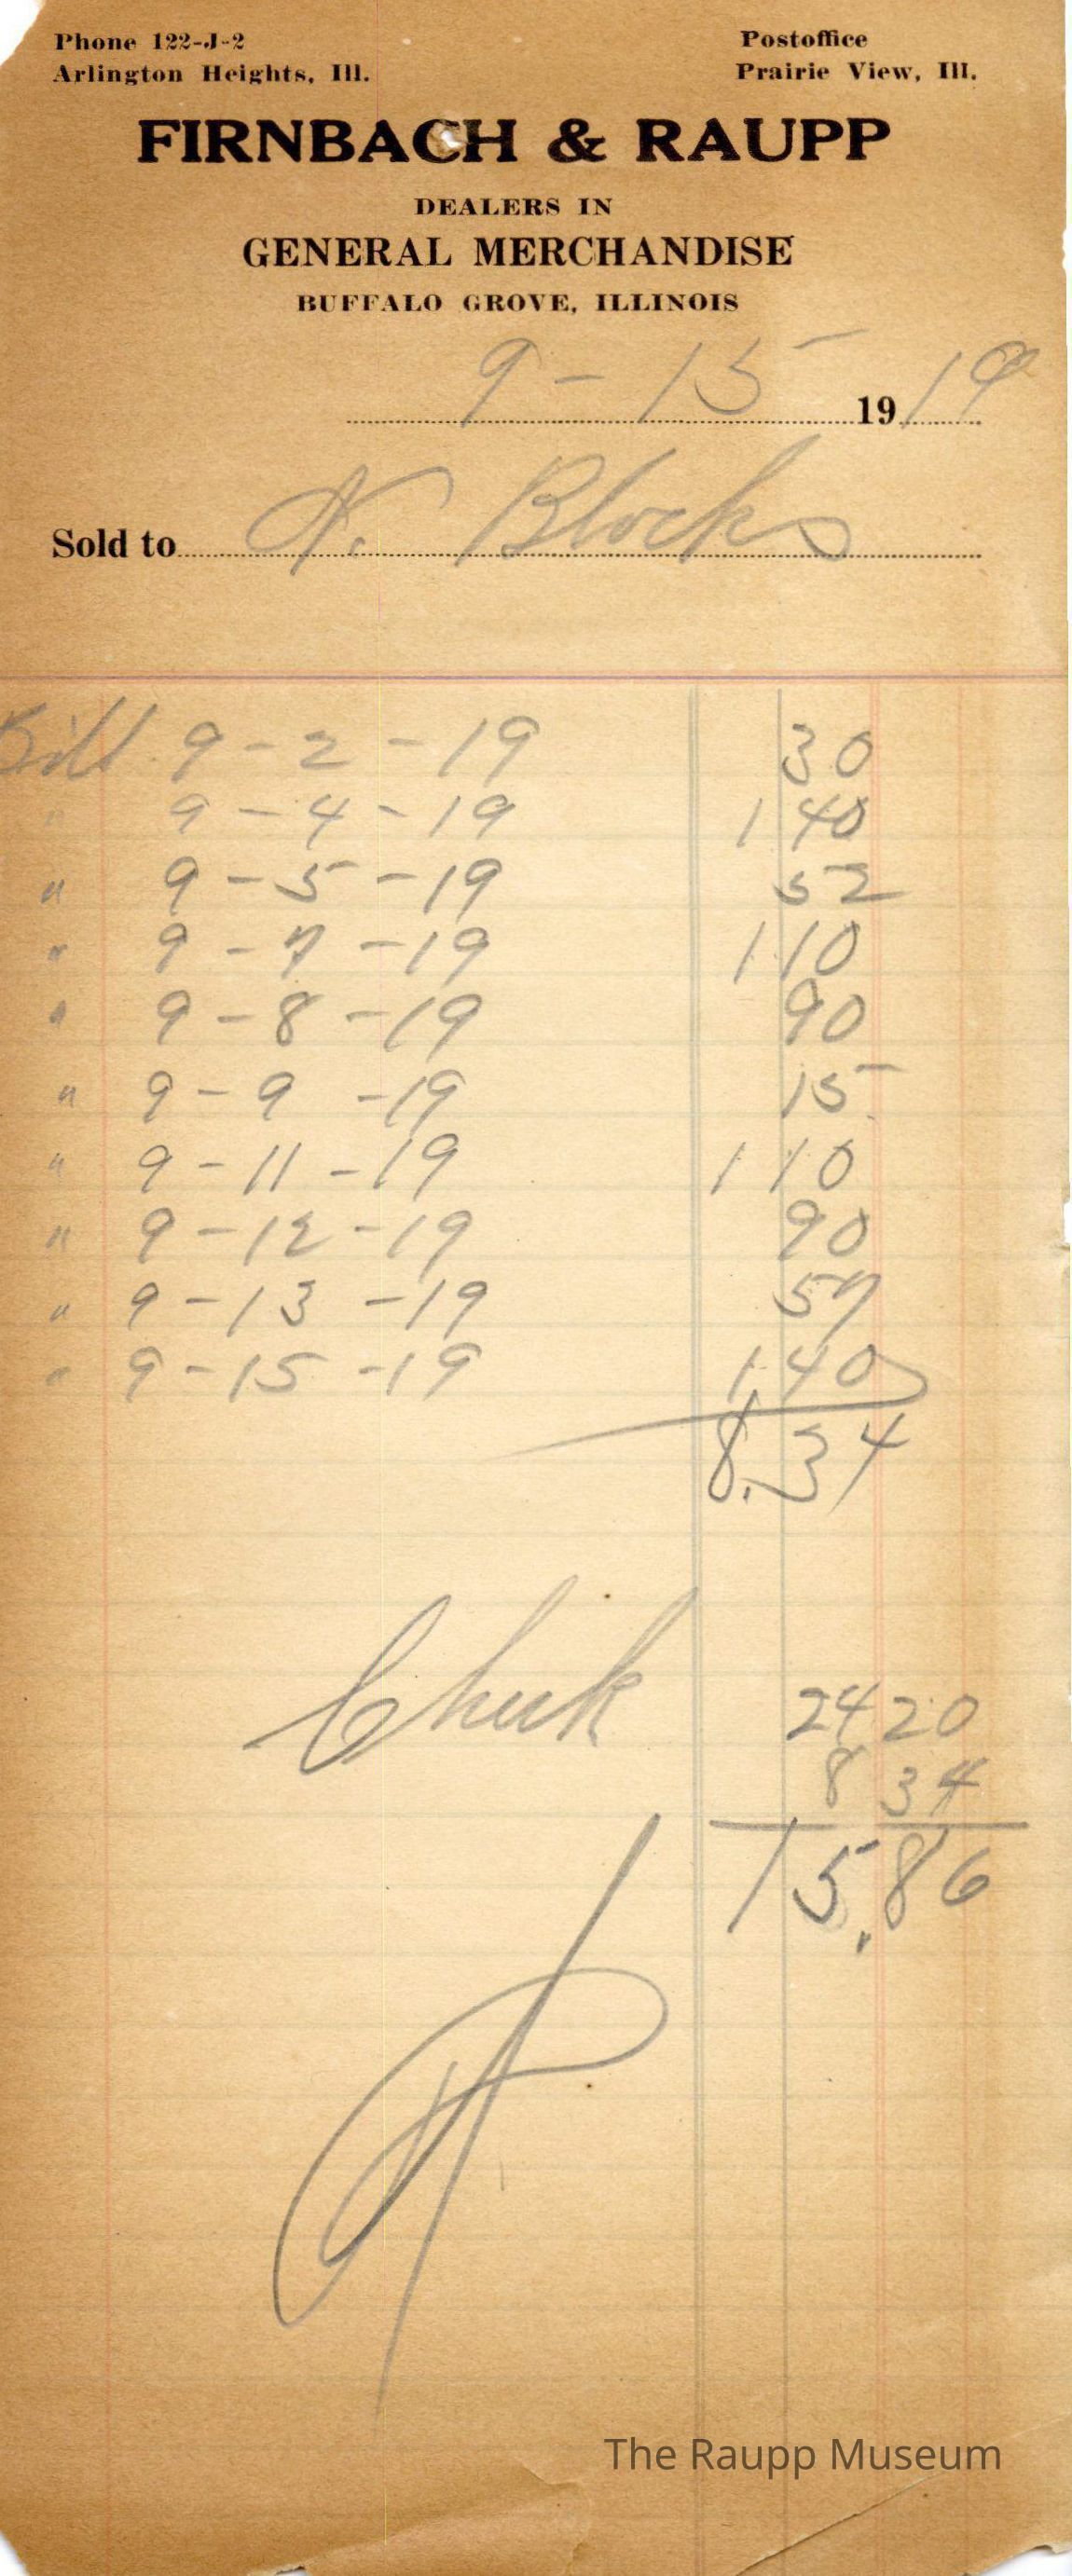 Phone 122-J-2 Postoffice
Arlington Heights, Ill. Prairie View, Ill.
FIRNBACH & RAUPP
DEALERS IN
GENERAL MERCHANDISE
BUFFALO GROVE, ILLINOIS
9-15 1919
Sold to Blocks
Bill 9-2-19 30
" 9-4-19 1 40
" 9-5-19 52
" 9-7-19 1 10
" 9-8-19 90
" 9-9-19 15
" 9-11-19 1 10
" 9-12-19 90
" 9-13-19 57
" 9-15-19 1.40
8.34
Check 24 20
8 34
15.86
The Raupp Museum